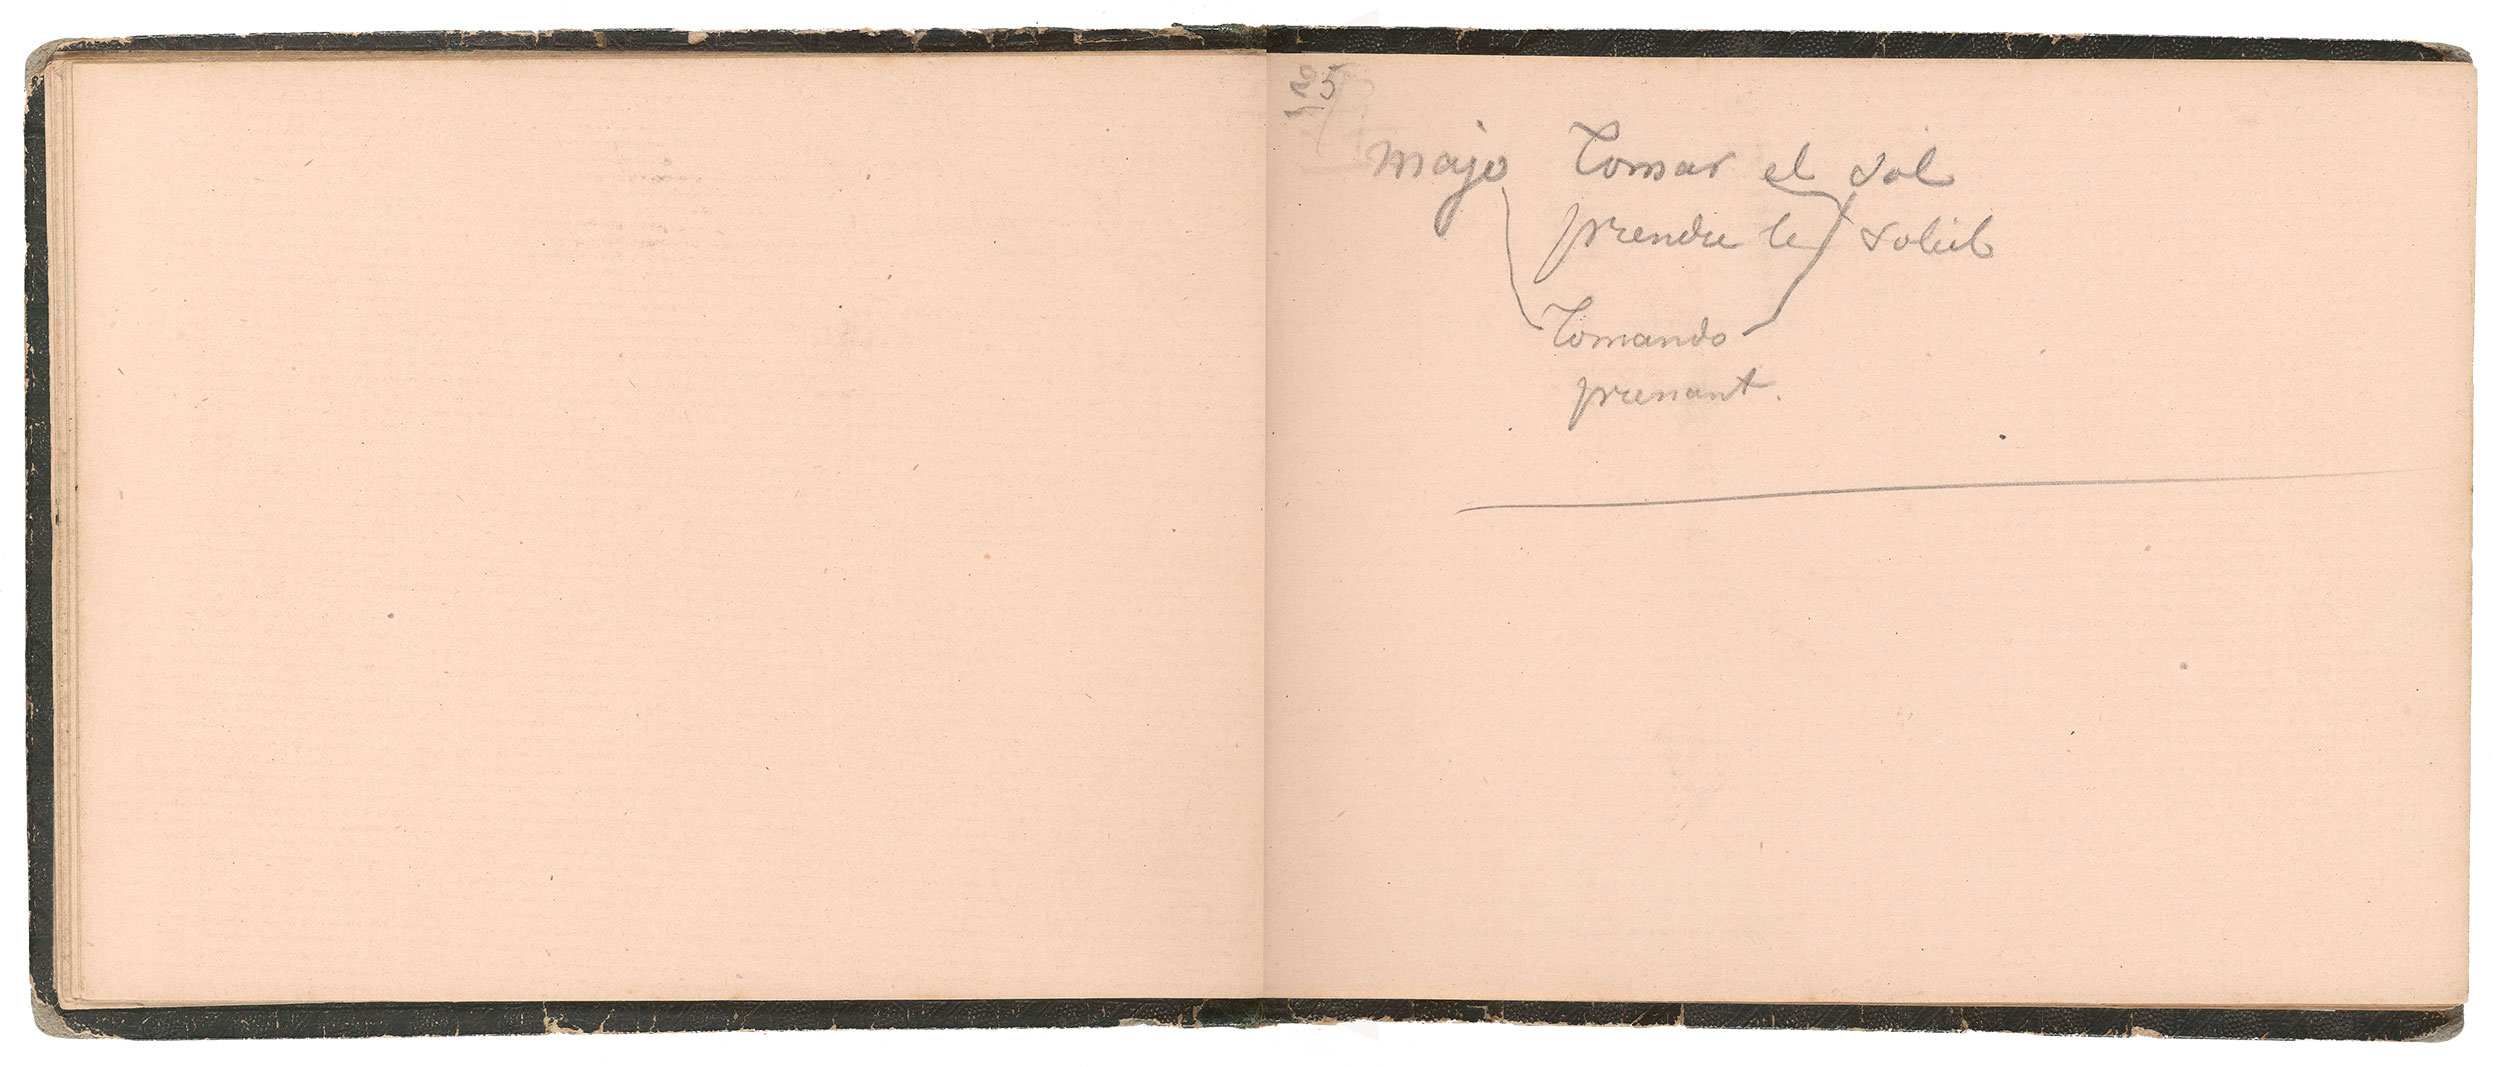 25
majo tomar el sol
prendre le soleil
tomando
prenant.